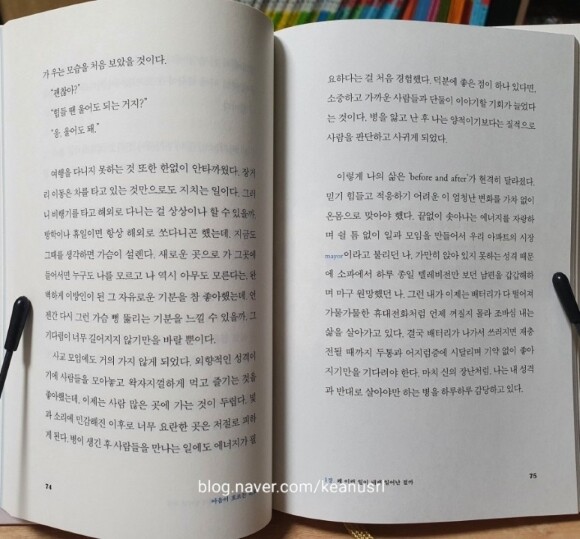 가 우는 모습을 처음 보았을 것이다.
"괜찮아?"
"힘들 땐 울어도 되는 거지?"
"응, 울어도 돼."
여행을 다니지 못하는 것 또한 한없이 안타까웠다. 장거
리 이동은 차를 타고 있는 것만으로도 지치는 일이다. 그러
니 비행기를 타고 해외로 다니는 걸 상상이나 할 수 있을까.
방학이나 휴일이면 항상 해외로 쏘다니곤 했는데, 지금도
그때를 생각하면 가슴이 설렌다. 새로운 곳으로 가 그곳에
들어서면 누구도 나를 모르고 나 역시 아무도 모른다는, 완
벽하게 이방인이 된 그 자유로운 기분을 참 좋아했는데. 언
젠간 다시 그런 가슴 뻥 뚫리는 기분을 느낄 수 있을까. 그
기다림이 너무 길어지지 않기만을 바랄 뿐이다.
사교 모임에도 거의 가지 않게 되었다. 외향적인 성격이
기에 사람들을 모아놓고 왁자지껄하게 먹고 즐기는 것을
좋아했는데, 이제는 사람 많은 곳에 가는 것이 두렵다. 빛
과 소리에 민감해진 이후로 너무 요란한 곳은 저절로 피하
게 된다. 병이 생긴 후 사람들을 만나는 일에도 에너지가 필
74
마음이 흐르는
요하다는 걸 처음 경험했다. 덕분에 좋은 점이 하나 있다면,
소중하고 가까운 사람들과 단둘이 이야기할 기회가 늘었다
는 것이다. 병을 앓고 난 후 나는 양적이기보다는 질적으로
사람을 판단하고 사귀게 되었다.
이렇게 나의 삶은 'before and after'가 현격히 달라졌다.
믿기 힘들고 적응하기 어려운 이 엄청난 변화를 가차 없이
온몸으로 맞아야 했다. 끝없이 솟아나는 에너지를 자랑하
며 쉴 틈 없이 일과 모임을 만들어서 우리 아파트의 시장
mayor이라고 불리던 나. 가만히 앉아 있지 못하는 성격 때문
에 소파에서 하루 종일 텔레비전만 보던 남편을 갑갑해하
며 마구 원망했던 나. 그런 내가 이제는 배터리가 다 떨어져
가물가물한 휴대전화처럼 언제 꺼질지 몰라 조마심 내는
삶을 살아가고 있다. 결국 배터리가 나가서 쓰러지면 재충
전될 때까지 두통과 어지럼증에 시달리며 기약 없이 좋아
지기만을 기다려야 한다. 마치 신의 장난처럼, 나는 내 성격
과 반대로 살아야만 하는 병을 하루하루 감당하고 있다.
1장 왜 이런 일이 내게 일어난 걸까
75
blog.naver.com/keanusri